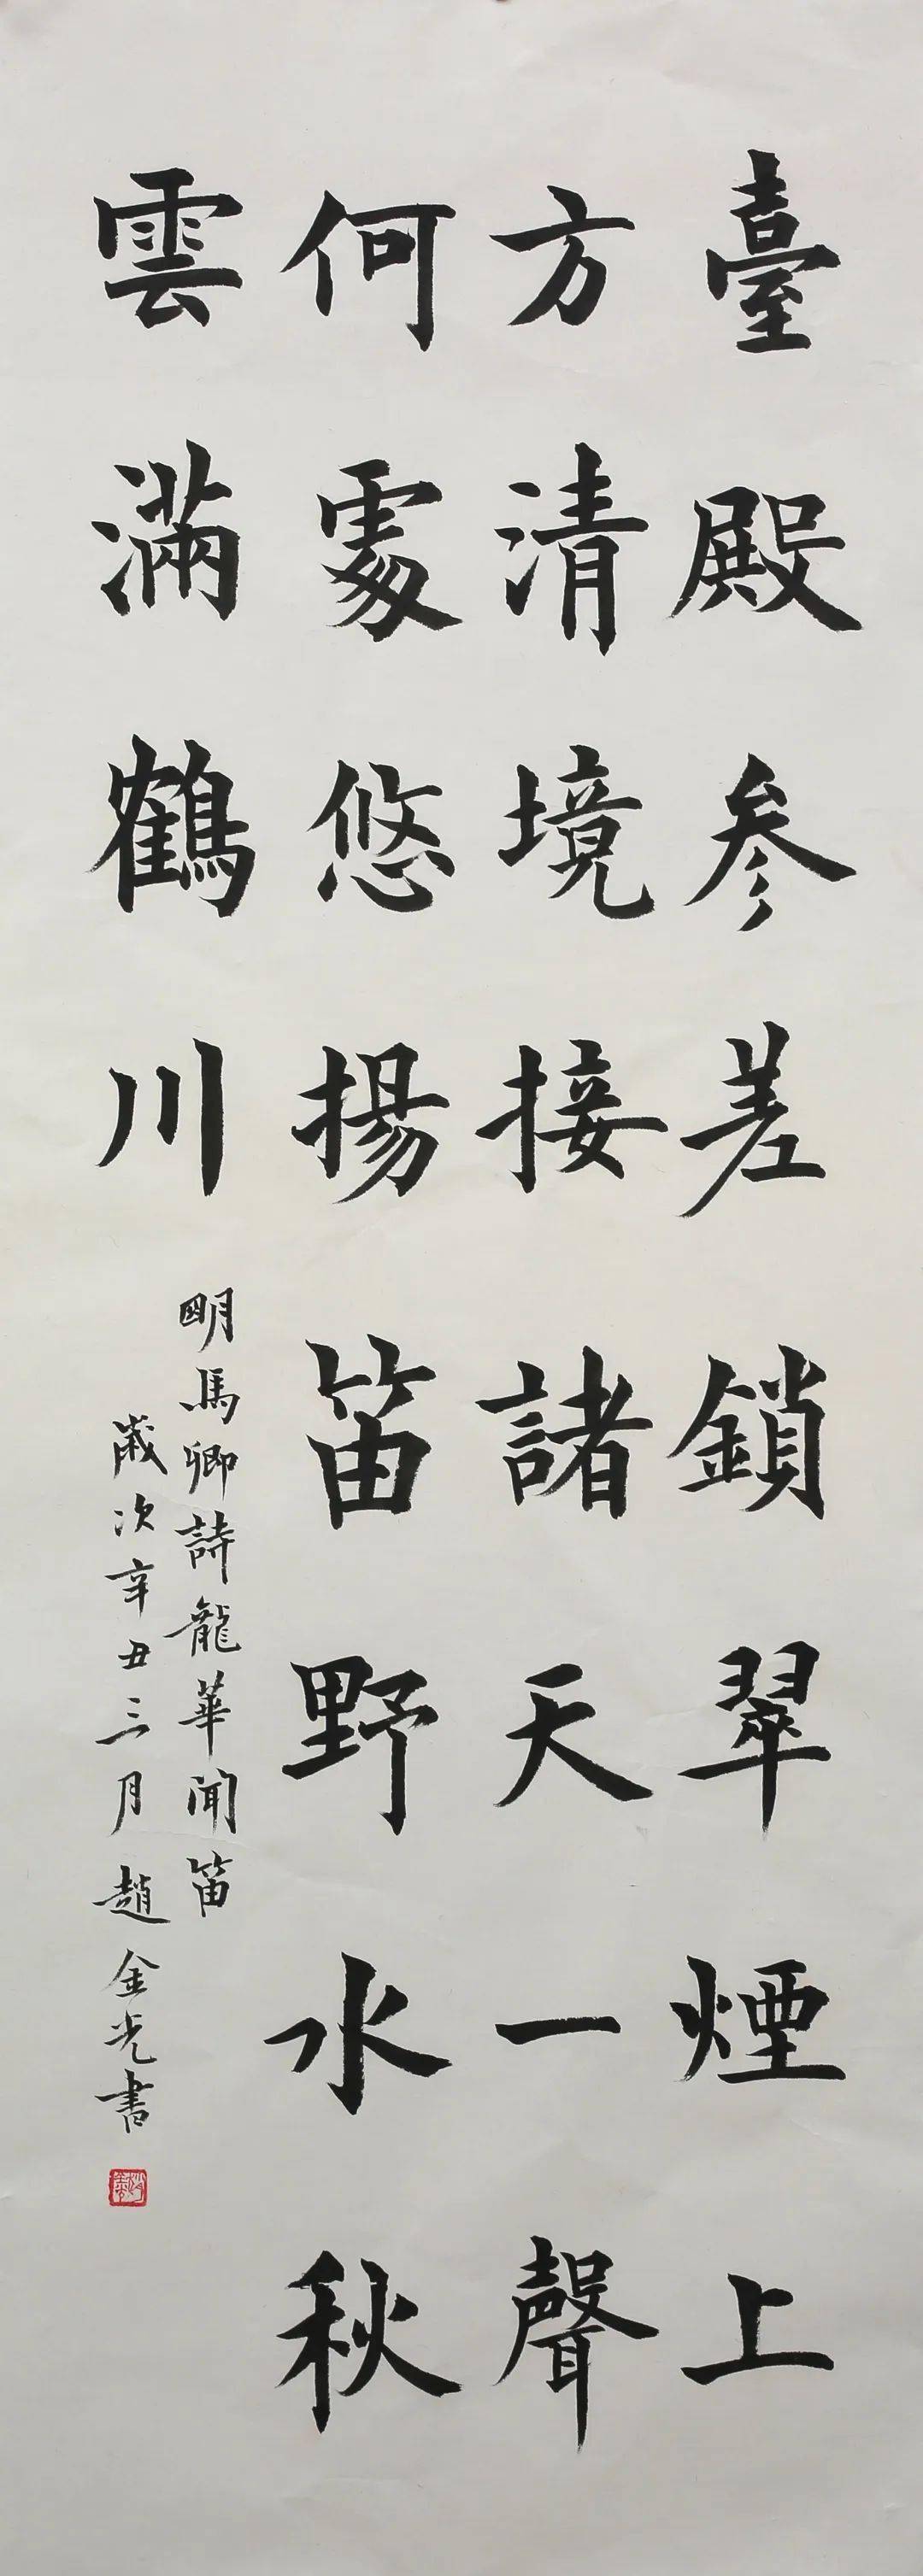 臺殿参差鎖翠煙上
方清境接諸天一聲
何處悠揚笛野水秋
雲滿鶴川
明馬卿詩龍華聞笛
歲次辛丑三月趙金光書